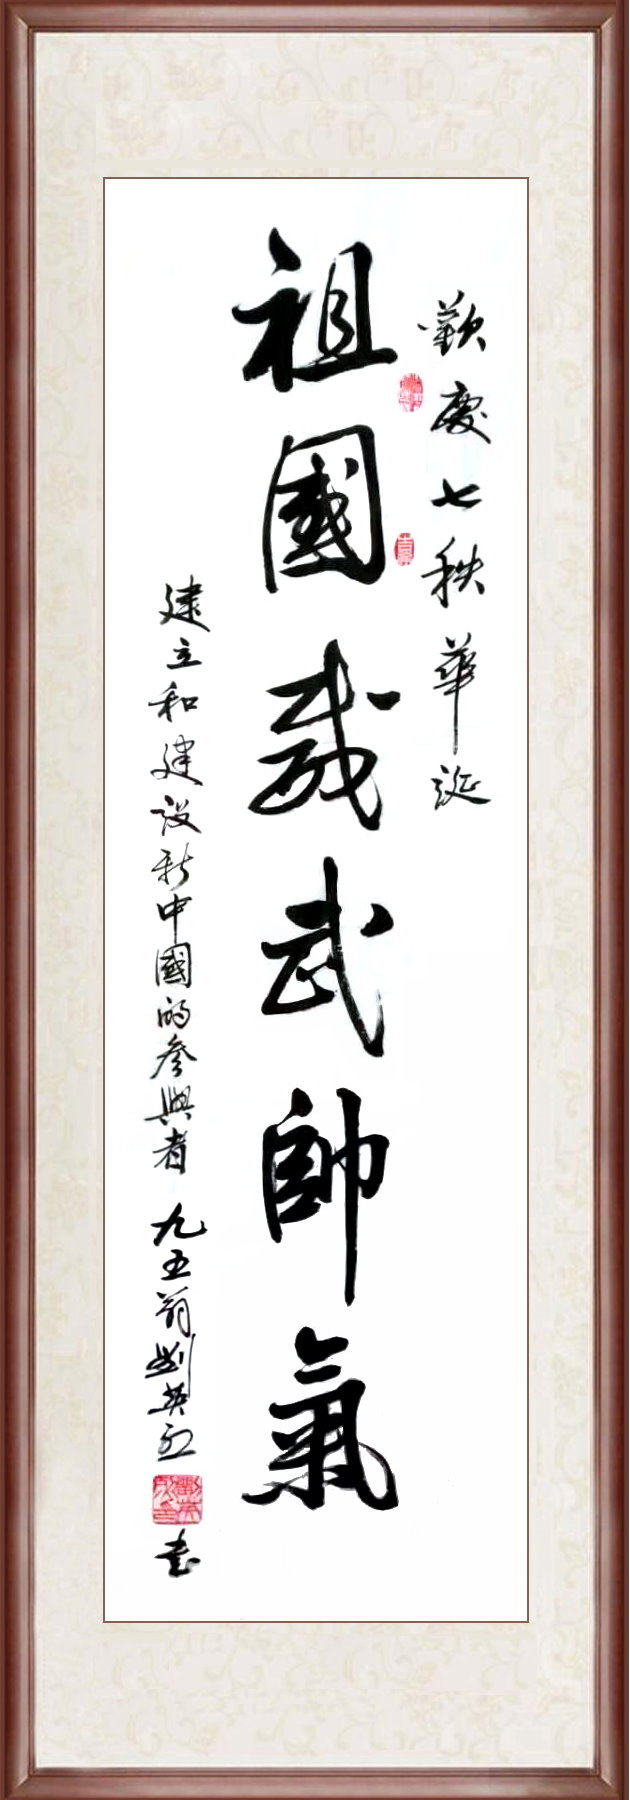 歡慶七秩華誕
祖國威武帥氣
建立和建設新中國的參與者 九五翁劉英 書